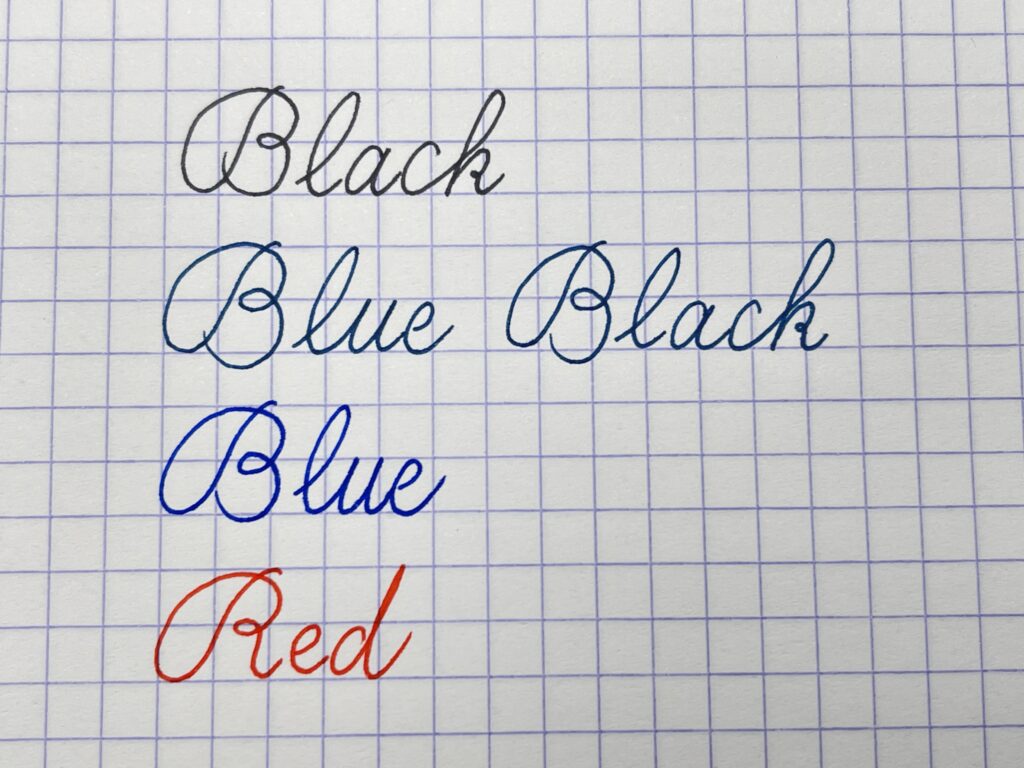 Black
Blue Black
Blue
Red